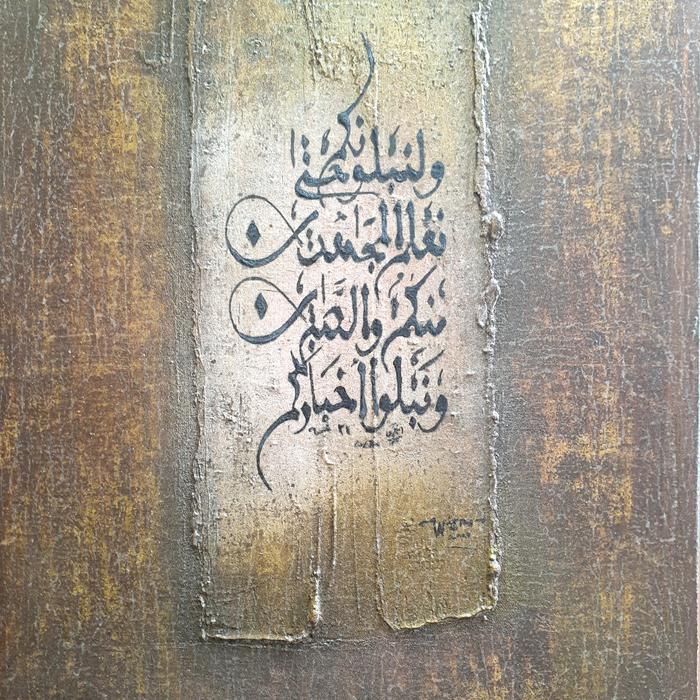 ولنبلونكم حتى
نعلم المجهدين
منكم والصبرين
ونبلوا أخباركم